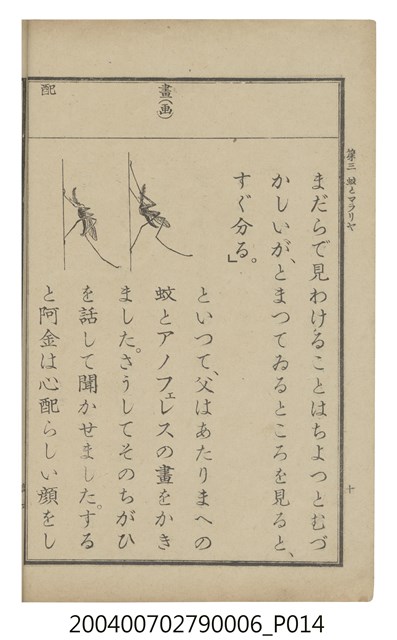 第三 蚊とマラリヤ
十
畫(画)
配
まだらで見わけることはちよつとむづ
かしいが、とまつてゐるところを見ると、
すぐ分る。」
といつて、父はあたりまへの
蚊とアノフェレスの畫をかき
ました。さうしてそのちがひ
を話して聞かせました。する
と阿金は心配らしい顏をし
200400702790006_P014